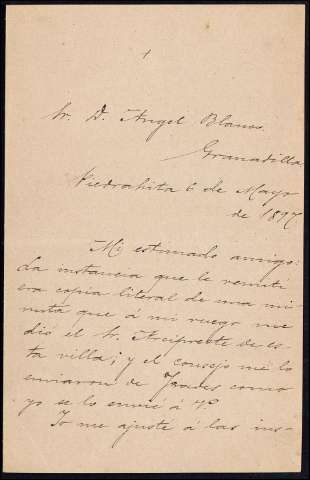 +
Sr. D. Angel Blanco.
Granadilla.
Piedrahita 6 de Mayo
de 1897
Mi estimado amigo:
La instancia que le remití
era copia literal de una mi-
nuta que á mi ruego me
dió el Sr. Arcipreste de es-
ta villa; y el consejo me lo
enviaron de como
yo se lo envié á V.
Yo me ajusté á las ins-